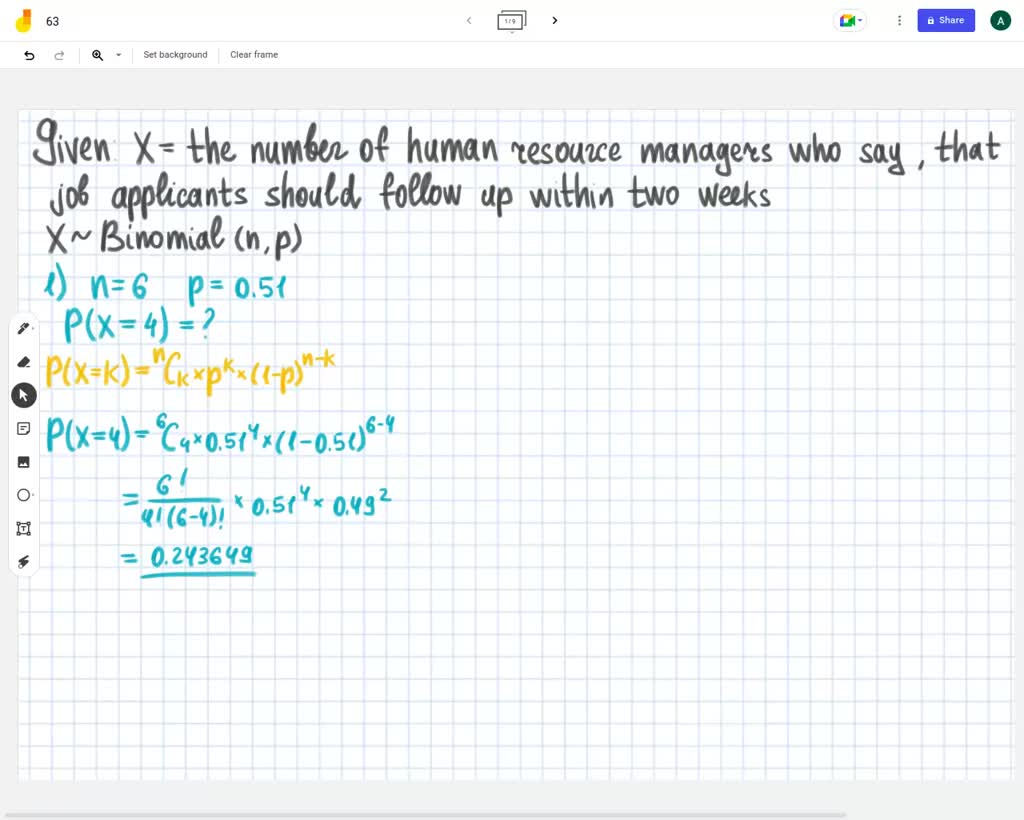 63
1/9
Share
A
Set background
Clear frame
Given: X = the number of human resource managers who say, that
job applicants should follow up within two weeks
X ~ Binomial (n, p)
1) n = 6 p = 0.51
P(X = 4) = ?
P(X=k) = ⁿCₖ × pᵏ × (1-p)ⁿ⁻ᵏ
P(X=4) = ⁶C₄ × 0.51⁴ × (1-0.51)⁶⁻⁴
= 6! / 4!(6-4)! × 0.51⁴ × 0.49²
= 0.243649